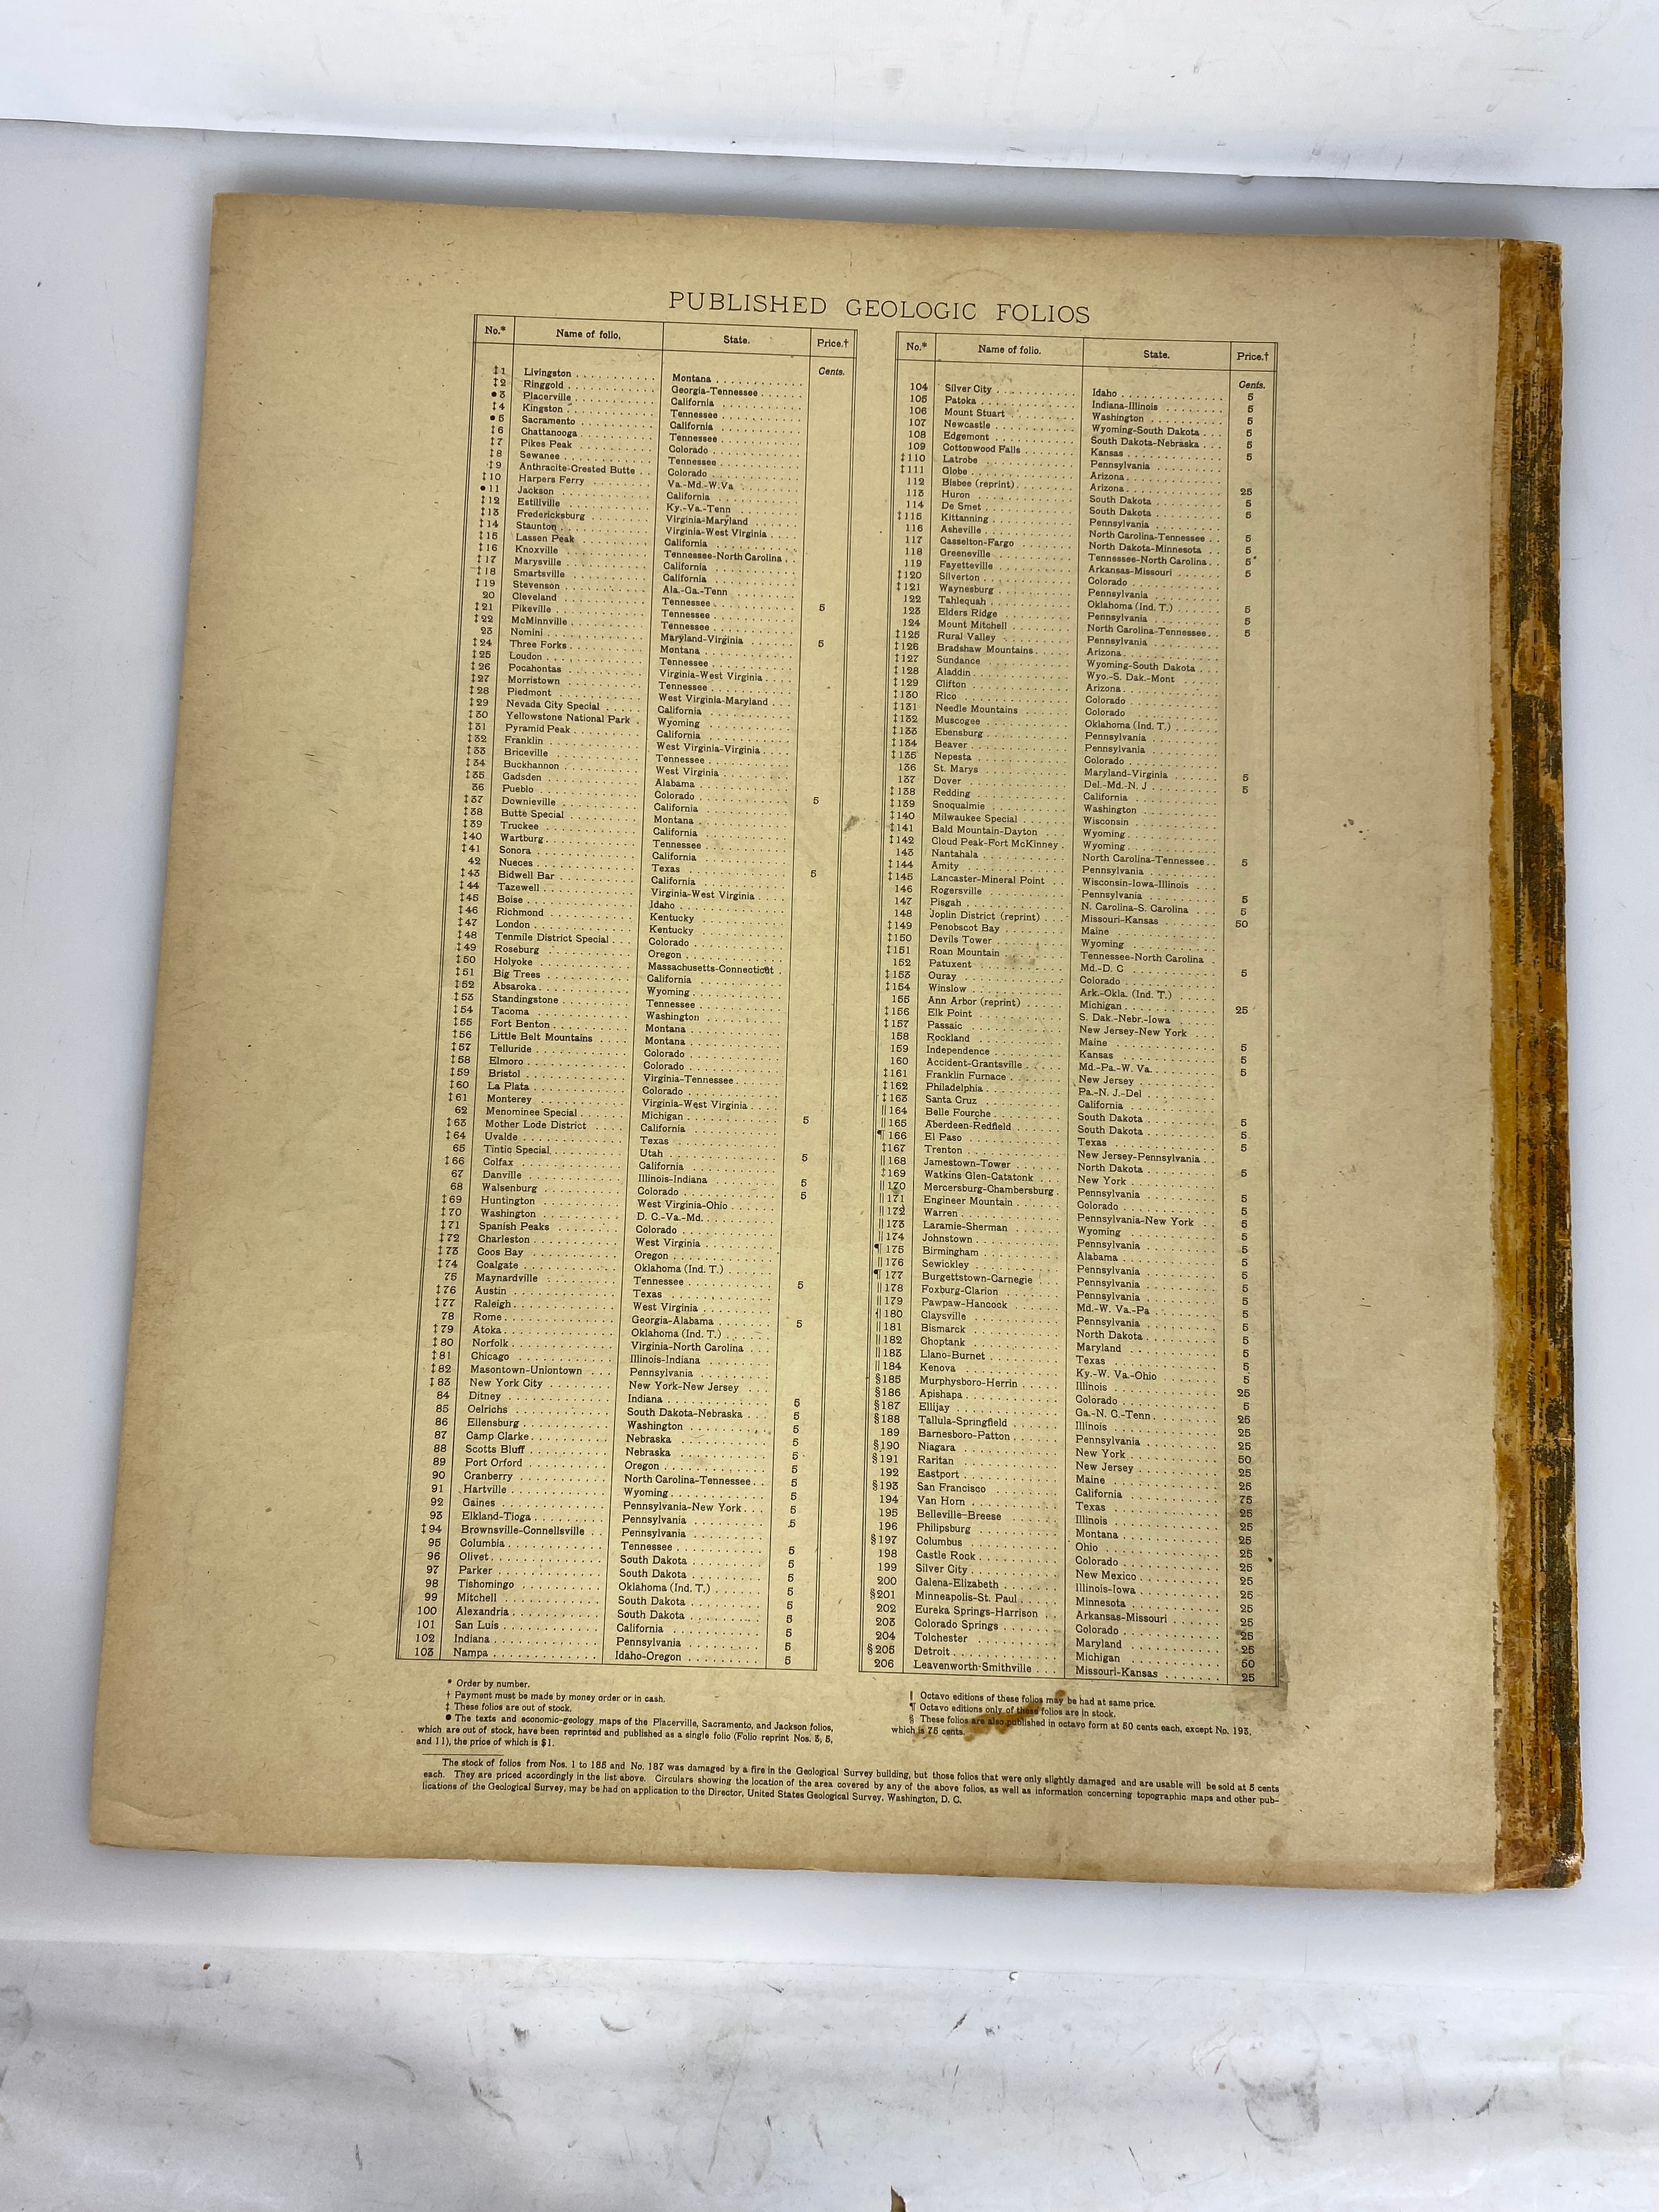 PUBLISHED GEOLOGIC FOLIOS
No.* Name of folio. State. Price.†
Cents.
‡1 Livingston Montana
‡2 Ringgold Georgia-Tennessee
●3 Placerville California
‡4 Kingston Tennessee
●5 Sacramento California
‡6 Chattanooga Tennessee
‡7 Pikes Peak Colorado
‡8 Sewanee Tennessee
‡9 Anthracite-Crested Butte Colorado
‡10 Harpers Ferry Va.-Md.-W.Va
●11 Jackson California
‡12 Estillville Ky.-Va.-Tenn
‡13 Fredericksburg Virginia-Maryland
‡14 Staunton Virginia-West Virginia
‡15 Lassen Peak California
‡16 Knoxville Tennessee-North Carolina
‡17 Marysville California
‡18 Smartsville California
‡19 Stevenson Ala.-Ga.-Tenn
20 Cleveland Tennessee 5
‡21 Pikeville Tennessee
‡22 McMinnville Tennessee
23 Nomini Maryland-Virginia 5
‡24 Three Forks Montana
‡25 Loudon Tennessee
‡26 Pocahontas Virginia-West Virginia
‡27 Morristown Tennessee
‡28 Piedmont West Virginia-Maryland
‡29 Nevada City Special California
‡30 Yellowstone National Park Wyoming
‡31 Pyramid Peak California
‡32 Franklin West Virginia-Virginia
‡33 Briceville Tennessee
‡34 Buckhannon West Virginia
‡35 Gadsden Alabama
36 Pueblo Colorado 5
‡37 Downieville California
‡38 Butte Special Montana
‡39 Truckee California
‡40 Wartburg Tennessee
‡41 Sonora California
42 Nueces Texas 5
‡43 Bidwell Bar California
‡44 Tazewell Virginia-West Virginia
‡45 Boise Idaho
‡46 Richmond Kentucky
‡47 London Kentucky
‡48 Tenmile District Special Colorado
‡49 Roseburg Oregon
‡50 Holyoke Massachusetts-Connecticut
‡51 Big Trees California
‡52 Absaroka Wyoming
‡53 Standingstone Tennessee
‡54 Tacoma Washington
‡55 Fort Benton Montana
‡56 Little Belt Mountains Montana
‡57 Telluride Colorado
‡58 Elmoro Colorado
‡59 Bristol Virginia-Tennessee
‡60 La Plata Colorado
‡61 Monterey Virginia-West Virginia
62 Menominee Special Michigan 5
‡63 Mother Lode District California
‡64 Uvalde Texas
65 Tintic Special Utah 5
‡66 Colfax California
67 Danville Illinois-Indiana 5
68 Walsenburg Colorado 5
‡69 Huntington West Virginia-Ohio
‡70 Washington D. C.-Va.-Md.
‡71 Spanish Peaks Colorado
‡72 Charleston West Virginia
‡73 Coos Bay Oregon
‡74 Coalgate Oklahoma (Ind. T.)
75 Maynardville Tennessee 5
‡76 Austin Texas
‡77 Raleigh West Virginia
78 Rome Georgia-Alabama 5
‡79 Atoka Oklahoma (Ind. T.)
‡80 Norfolk Virginia-North Carolina
‡81 Chicago Illinois-Indiana
‡82 Masontown-Uniontown Pennsylvania
‡83 New York City New York-New Jersey
84 Ditney Indiana 5
85 Oelrichs South Dakota-Nebraska 5
86 Ellensburg Washington 5
87 Camp Clarke Nebraska 5
88 Scotts Bluff Nebraska 5
89 Port Orford Oregon 5
90 Cranberry North Carolina-Tennessee 5
91 Hartville Wyoming 5
92 Gaines Pennsylvania-New York 5
93 Elkland-Tioga Pennsylvania 5
‡94 Brownsville-Connellsville Pennsylvania
95 Columbia Tennessee 5
96 Olivet South Dakota 5
97 Parker South Dakota 5
98 Tishomingo Oklahoma (Ind. T.) 5
99 Mitchell South Dakota 5
100 Alexandria South Dakota 5
101 San Luis California 5
102 Indiana Pennsylvania 5
103 Nampa Idaho-Oregon 5
No.* Name of folio. State. Price.†
Cents.
104 Silver City Idaho 5
105 Patoka Indiana-Illinois 5
106 Mount Stuart Washington 5
107 Newcastle Wyoming-South Dakota 5
108 Edgemont South Dakota-Nebraska 5
109 Cottonwood Falls Kansas 5
‡110 Latrobe Pennsylvania
‡111 Globe Arizona
112 Bisbee (reprint) Arizona 25
113 Huron South Dakota 5
114 De Smet South Dakota 5
‡115 Kittanning Pennsylvania
116 Asheville North Carolina-Tennessee 5
117 Casselton-Fargo North Dakota-Minnesota 5
118 Greeneville Tennessee-North Carolina 5
119 Fayetteville Arkansas-Missouri 5
‡120 Silverton Colorado
‡121 Waynesburg Pennsylvania
122 Tahlequah Oklahoma (Ind. T.) 5
123 Elders Ridge Pennsylvania 5
124 Mount Mitchell North Carolina-Tennessee 5
‡125 Rural Valley Pennsylvania
‡126 Bradshaw Mountains Arizona
‡127 Sundance Wyoming-South Dakota
‡128 Aladdin Wyo.-S. Dak.-Mont
‡129 Clifton Arizona
‡130 Rico Colorado
‡131 Needle Mountains Colorado
‡132 Muscogee Oklahoma (Ind. T.)
‡133 Ebensburg Pennsylvania
‡134 Beaver Pennsylvania
‡135 Nepesta Colorado
136 St. Marys Maryland-Virginia 5
137 Dover Del.-Md.-N. J 5
‡138 Redding California
‡139 Snoqualmie Washington
‡140 Milwaukee Special Wisconsin
‡141 Bald Mountain-Dayton Wyoming
‡142 Cloud Peak-Fort McKinney Wyoming
143 Nantahala North Carolina-Tennessee 5
‡144 Amity Pennsylvania
‡145 Lancaster-Mineral Point Wisconsin-Iowa-Illinois
146 Rogersville Pennsylvania 5
147 Pisgah N. Carolina-S. Carolina 5
148 Joplin District (reprint) Missouri-Kansas 50
‡149 Penobscot Bay Maine
‡150 Devils Tower Wyoming
‡151 Roan Mountain Tennessee-North Carolina
152 Patuxent Md.-D. C 5
‡153 Ouray Colorado
‡154 Winslow Ark.-Okla. (Ind. T.)
155 Ann Arbor (reprint) Michigan 25
‡156 Elk Point S. Dak.-Nebr.-Iowa
‡157 Passaic New Jersey-New York
158 Rockland Maine 5
159 Independence Kansas 5
160 Accident-Grantsville Md.-Pa.-W. Va. 5
‡161 Franklin Furnace New Jersey
‡162 Philadelphia Pa.-N. J.-Del
‡163 Santa Cruz California
‖164 Belle Fourche South Dakota 5
‖165 Aberdeen-Redfield South Dakota 5
¶166 El Paso Texas 5
‡167 Trenton New Jersey-Pennsylvania
‖168 Jamestown-Tower North Dakota 5
‡169 Watkins Glen-Catatonk New York
‖170 Mercersburg-Chambersburg Pennsylvania 5
‖171 Engineer Mountain Colorado 5
‖172 Warren Pennsylvania-New York 5
‖173 Laramie-Sherman Wyoming 5
‖174 Johnstown Pennsylvania 5
¶175 Birmingham Alabama 5
‖176 Sewickley Pennsylvania 5
¶177 Burgettstown-Carnegie Pennsylvania 5
‖178 Foxburg-Clarion Pennsylvania 5
‖179 Pawpaw-Hancock Md.-W. Va.-Pa 5
‖180 Claysville Pennsylvania 5
‖181 Bismarck North Dakota 5
‖182 Choptank Maryland 5
‖183 Llano-Burnet Texas 5
‖184 Kenova Ky.-W. Va.-Ohio 5
§185 Murphysboro-Herrin Illinois 25
§186 Apishapa Colorado 5
§187 Ellijay Ga.-N. C.-Tenn. 25
§188 Tallula-Springfield Illinois 25
189 Barnesboro-Patton Pennsylvania 25
§190 Niagara New York 50
§191 Raritan New Jersey 25
192 Eastport Maine 25
§193 San Francisco California 75
194 Van Horn Texas 25
195 Belleville-Breese Illinois 25
196 Philipsburg Montana 25
§197 Columbus Ohio 25
198 Castle Rock Colorado 25
199 Silver City New Mexico 25
200 Galena-Elizabeth Illinois-Iowa 25
§201 Minneapolis-St. Paul Minnesota 25
202 Eureka Springs-Harrison Arkansas-Missouri 25
203 Colorado Springs Colorado 25
204 Tolchester Maryland 25
§205 Detroit Michigan 50
206 Leavenworth-Smithville Missouri-Kansas 25
* Order by number.
† Payment must be made by money order or in cash.
‡ These folios are out of stock.
● The texts and economic-geology maps of the Placerville, Sacramento, and Jackson folios,
which are out of stock, have been reprinted and published as a single folio (Folio reprint Nos. 3, 5,
and 11), the price of which is $1.
‖ Octavo editions of these folios may be had at same price.
¶ Octavo editions only of these folios are in stock.
§ These folios are also published in octavo form at 50 cents each, except No. 193,
which is 75 cents.
The stock of folios from Nos. 1 to 185 and No. 187 was damaged by a fire in the Geological Survey building, but those folios that were only slightly damaged and are usable will be sold at 5 cents
each. They are priced accordingly in the list above. Circulars showing the location of the area covered by any of the above folios, as well as information concerning topographic maps and other pub-
lications of the Geological Survey, may be had on application to the Director, United States Geological Survey, Washington, D. C.